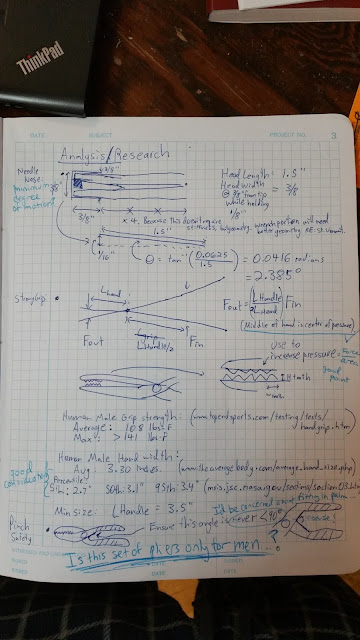 ThinkPad
DATE
SUBJECT
PROJECT NO.
3
Analysis/Research
Needle
Nose
minimum
degree
of motion!
3/8"
Head Length: 1.5"
Head width
@ 3/8" from tip
while holding
1/8"
= 3/8
3/8"
x 4. Because this doesn't require
1.5"
1/16"
θ = tan⁻¹ (0.0625/1.5) = 0.0416 radians
= 2.385°
Strong Grip
L head
Fout = (L Handle / 2 L Head) Fin
(Middle of hand is centre of pressure)
Fout
L Handle/2
Fin
use to
increase pressure = Force/area
good point
Human Male Grip Strength: (www.topendsports.com/testing/tests/handgrip.htm)
Average: 108 lbs-F
Max: > 141 lbs-F
Human Male Hand width:
Avg: 3.30 inches. (www.theaveragebody.com/average_hand_size.php)
good
Percentile
5th: 2.7" 50th: 3.1" 95th: 3.4" (msis.jsc.nasa.gov/sections/section03.htm)
Min size: L Handle = 3.5"
I'd be concerned about fitting in palm
Pinch
Safety
Ensure this angle is never < 90°
Is this set of pliers only for men...?
DATE